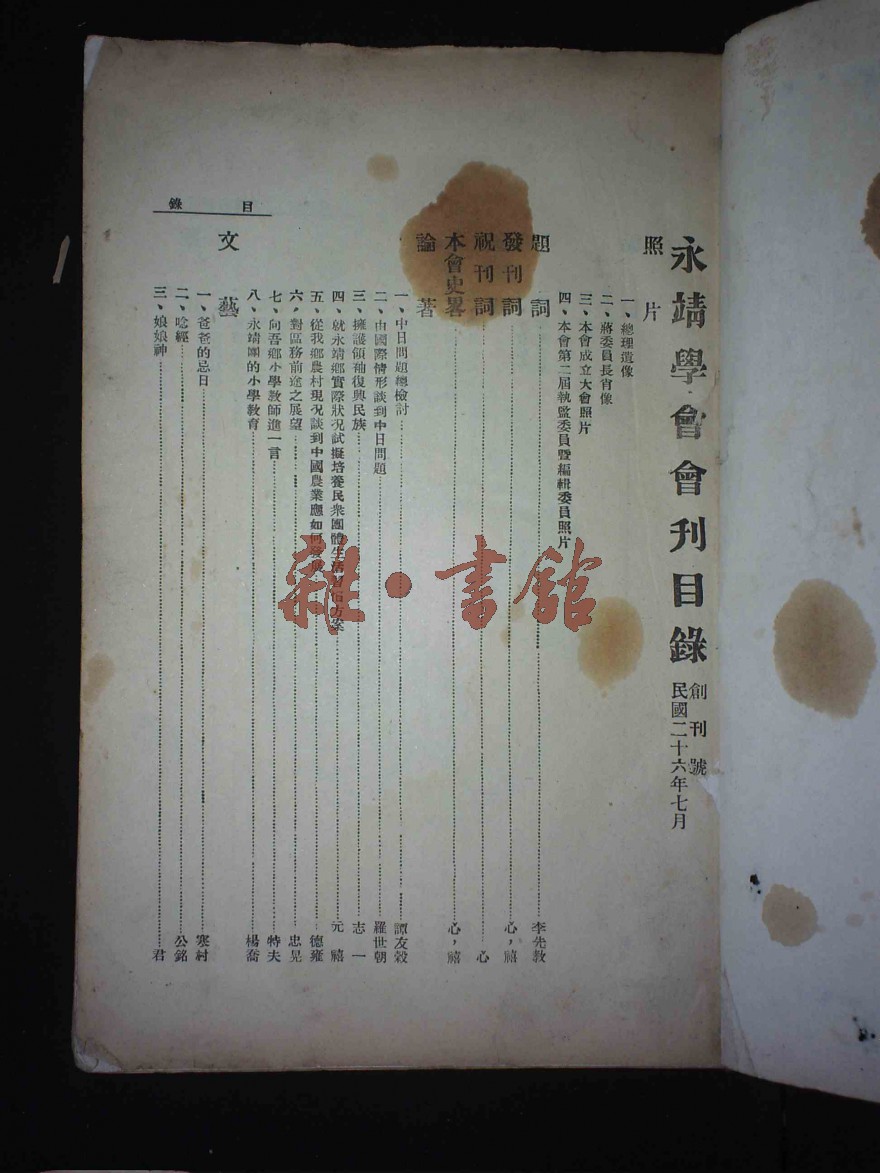 永靖學會會刊目錄
創刊號
民國二十六年七月
照片
一、總理遺像
二、蔣委員長肖像
三、本會成立大會照片
四、本會第二屆執監委員暨編輯委員照片
題詞 李先教
發刊詞 心，禧
祝刊詞 心
本會史畧 心，禧
論著
一、中日問題總檢討 譚友穀
二、由國際情形談到中日問題 羅世朝
三、擁護領袖復興民族 志一
四、就永靖鄉實際狀况試擬培養民衆團體生活習慣方案 元禧
五、從我鄉農村現况談到中國農業應如何發展 德雍
六，對區務前途之展望 忠晃
七、向吾鄉小學教師進一言 特夫
八、永靖團的小學教育 楊喬
文藝
一、爸爸的忌日 寒村
二、唸經 公銘
三、娘娘神 君
目錄
雜·書館